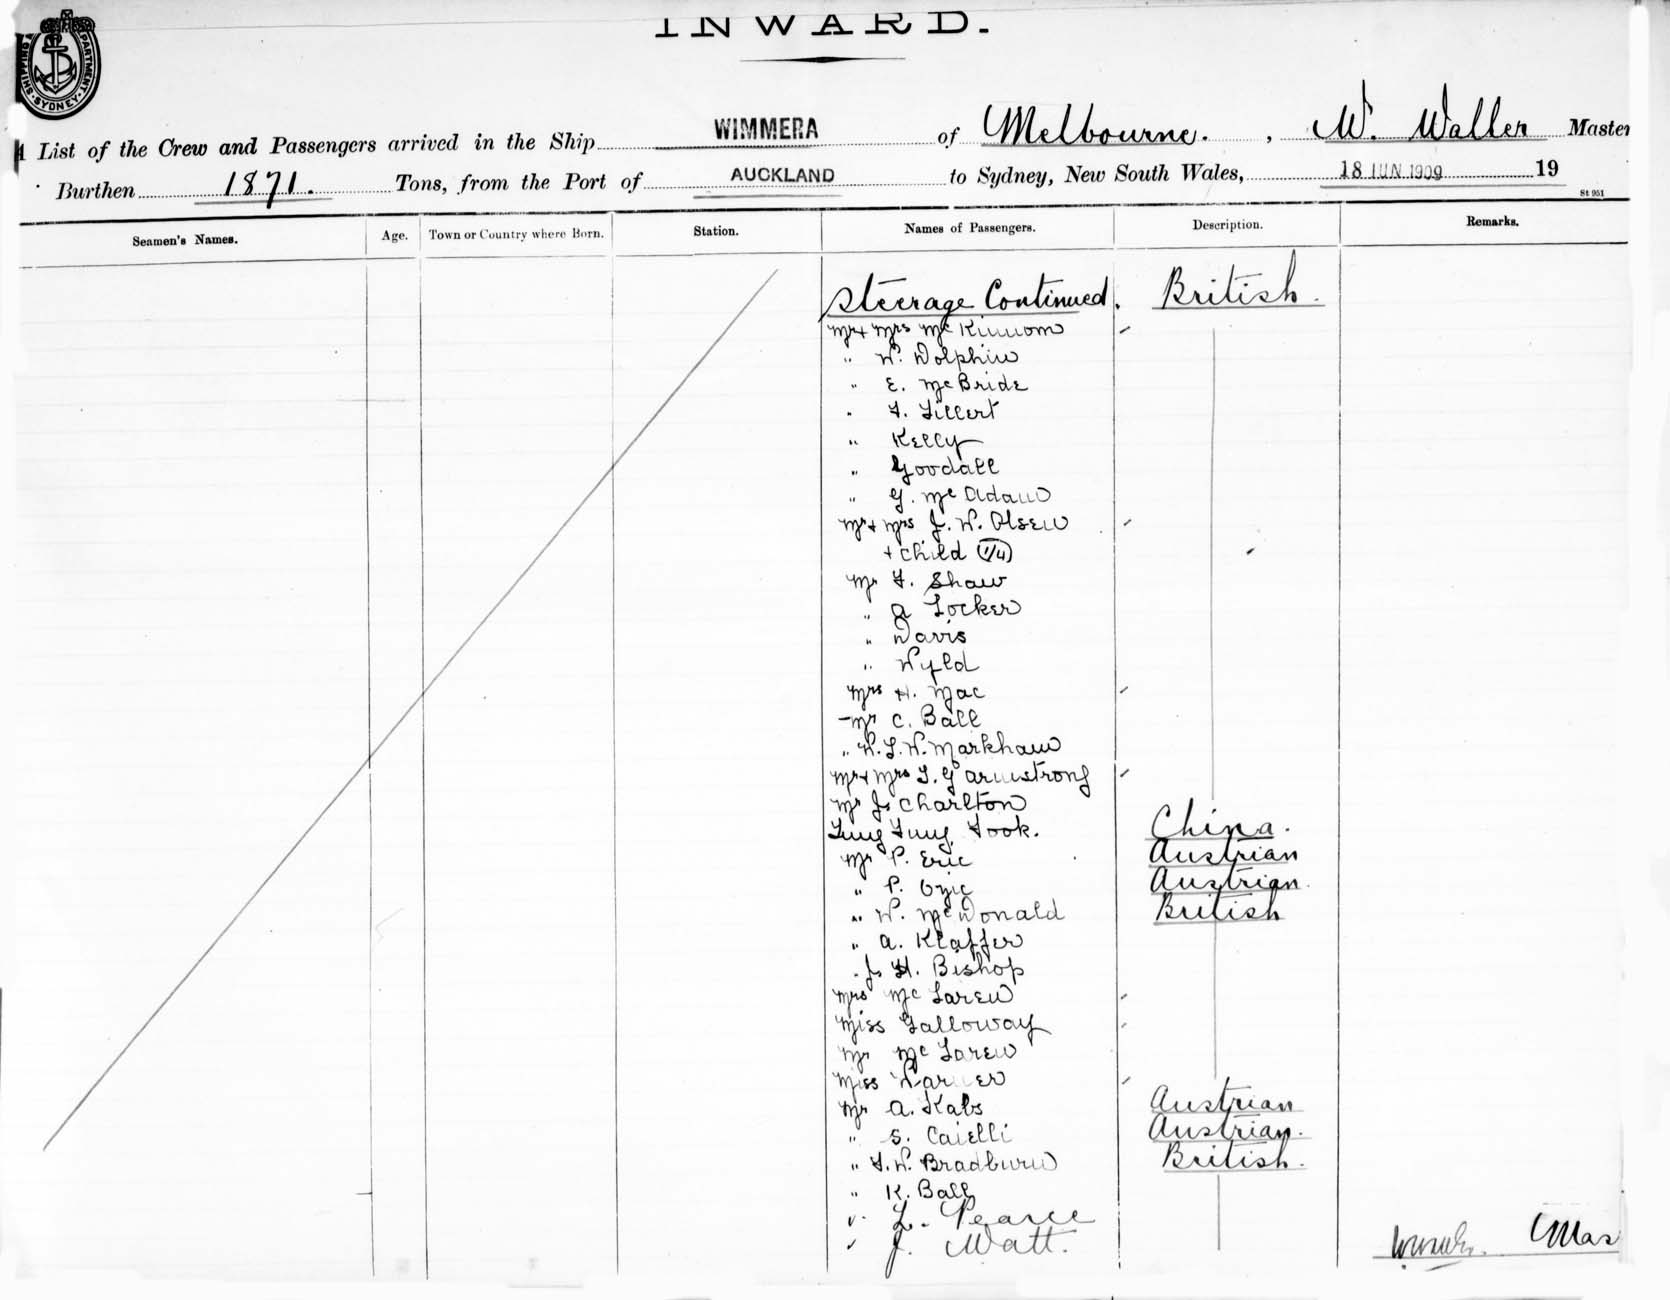 INWARD.
SHIPPING DEPARTMENT. SYDNEY.
List of the Crew and Passengers arrived in the Ship WIMMERA of Melbourne. , W. Waller Master
Burthen 1871. Tons, from the Port of AUCKLAND to Sydney, New South Wales, 18 JUN 1909 19
St 951
Seamen's Names. Age. Town or Country where Born. Station. Names of Passengers. Description. Remarks.
Steerage Continued. British.
Mr + Mrs McKinnom
" W. Dolphin
" E. McBride
" F. Lillert
" Kelly
" Goodall
" G. McAdam
Mr + Mrs J. W. Olsen
+ child (1/4)
Mr F. Shaw
" A Locker
" Davis
" Wyld
Mrs H. Mac
Mr C. Ball
" W. L. W. Markham
Mr + Mrs L. G Armstrong
Mr J. Charlton
Fook. China.
Mr P. Eric Austrian
" P. Austrian.
" W. McDonald British
" A. Klaffer
" J. H. Bishop
Mrs McLaren
Miss Galloway
Mr McLaren
Miss
Mr A. Kabs Austrian
" S. Caielli Austrian.
" F. W. Bradburn British.
" K. Ball
" L. Pearce
" J. Watt.
Mas